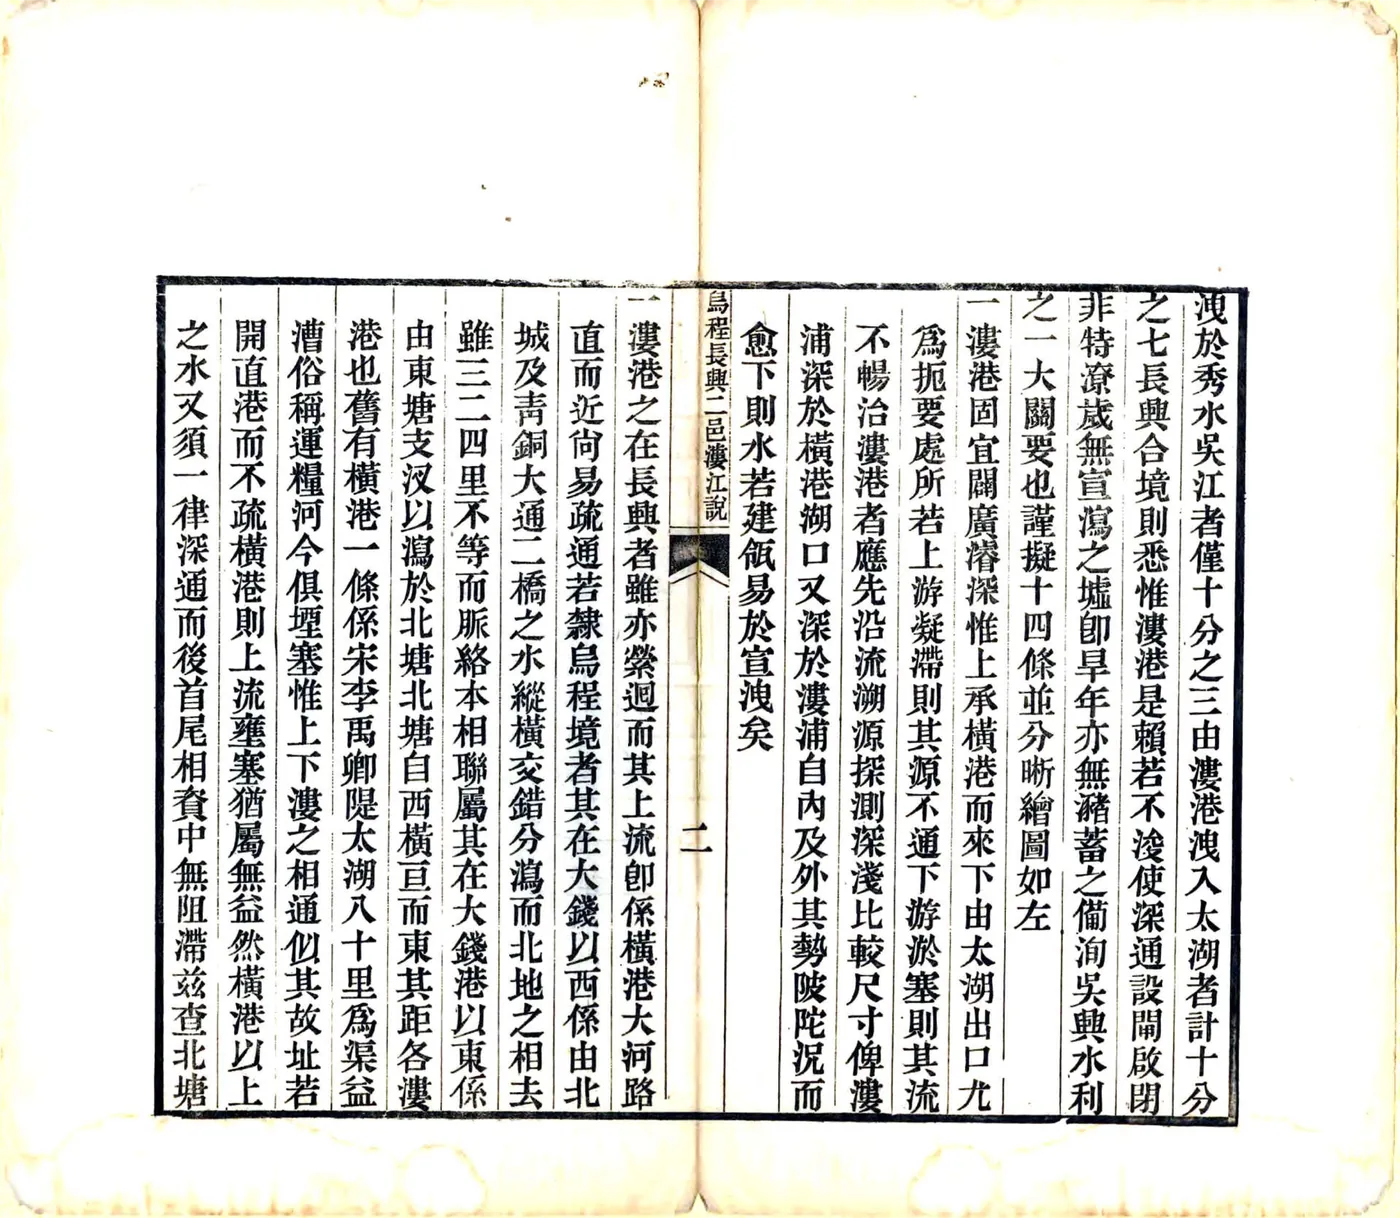 洩於秀水吳江者僅十分之三由漊港洩入太湖者計十分
之七長興合境則悉惟漊港是賴若不浚使深通設閘啟閉
非特潦歲無宣瀉之墟卽旱年亦無瀦蓄之備洵吳興水利
之一大關要也謹擬十四條並分晰繪圖如左
一漊港固宜闢廣濬深惟上承橫港而來下由太湖出口尤
爲扼要處所若上游凝滯則其源不通下游淤塞則其流
不暢治漊港者應先沿流溯源探測深淺比較尺寸俾漊
浦深於橫港湖口又深於漊浦自內及外其勢陂陀況而
愈下則水若建瓴易於宣洩矣
烏程長興二邑漊江說
二
一漊港之在長興者雖亦縈迴而其上流卽係橫港大河路
直而近尙易疏通若隸烏程境者其在大錢以西係由北
城及靑銅大通二橋之水縱橫交錯分瀉而北地之相去
雖三二四里不等而脈絡本相聯屬其在大錢港以東係
由東塘支汊以瀉於北塘北塘自西橫亘而東其距各漊
港也舊有橫港一條係宋李禹卿隄太湖八十里爲渠益
漕俗稱運糧河今俱堙塞惟上下漊之相通似其故址若
開直港而不疏橫港則上流壅塞猶屬無益然橫港以上
之水又須一律深通而後首尾相資中無阻滯兹查北塘